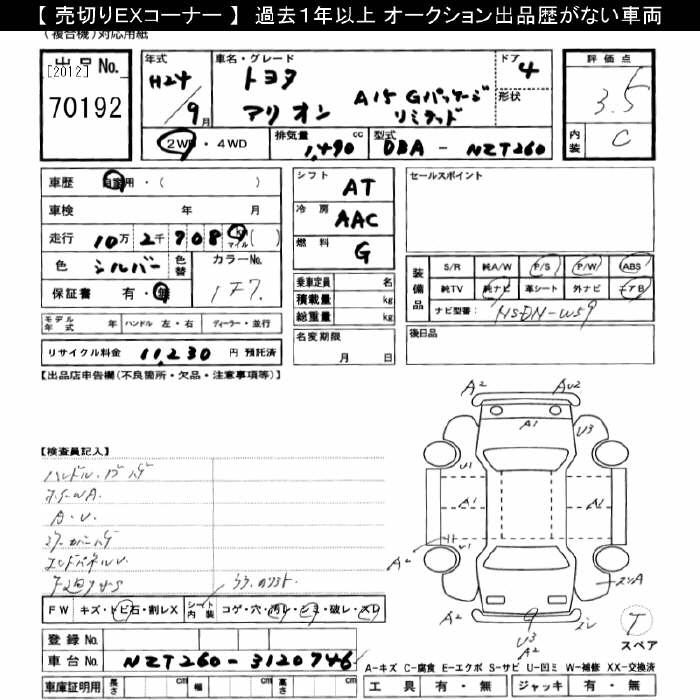 【 売切りEXコーナー 】 過去１年以上 オークション出品歴がない車両
(複合機)対応用紙
出品No.
[2012]
70192
年式
H24
9月
車名・グレード
トヨタ
アリオン A15 Gパッケージ
リミテッド
ドア 4
形状
2WD・4WD
排気量 1,490 cc
型式 DBA - NZT260
評価点
3.5
内装 C
車歴 自家用・( )
車検 年 月
走行 10万 2千 908 km マイル( )
色 シルバー 色替
カラーNo.
1F7.
保証書 有・無
シフト AT
冷房 AAC
燃料 G
乗車定員 名
積載量 kg
総重量 kg
名変期限
月 日
セールスポイント
装備品
S/R 純A/W P/S P/W ABS
純TV 純ナビ 革シート 外ナビ エアB
ナビ型番: NSDN-W59
後日品
モデル年式 年 ハンドル 左・右 ディーラー・並行
リサイクル料金 11,230 円 預託済
【出品店申告欄(不良箇所・欠品・注意事項等)】
【検査員記入】
A2
AU2
A1
U3
U1
A1
A1
U1
A2
A2
9
U3
A2
スリA
スレ
T
スペア
FW キズ・トビ石・割レX シート内装 コゲ・穴・汚レ・シミ・破レ・スレ
登録No.
車台No. NZT260-3120746
車庫証明用 長さ cm 幅 cm 高さ cm
A-キズ C-腐食 E-エクボ S-サビ U-凹ミ W-補修 XX-交換済
工具 有・無 ジャッキ 有・無